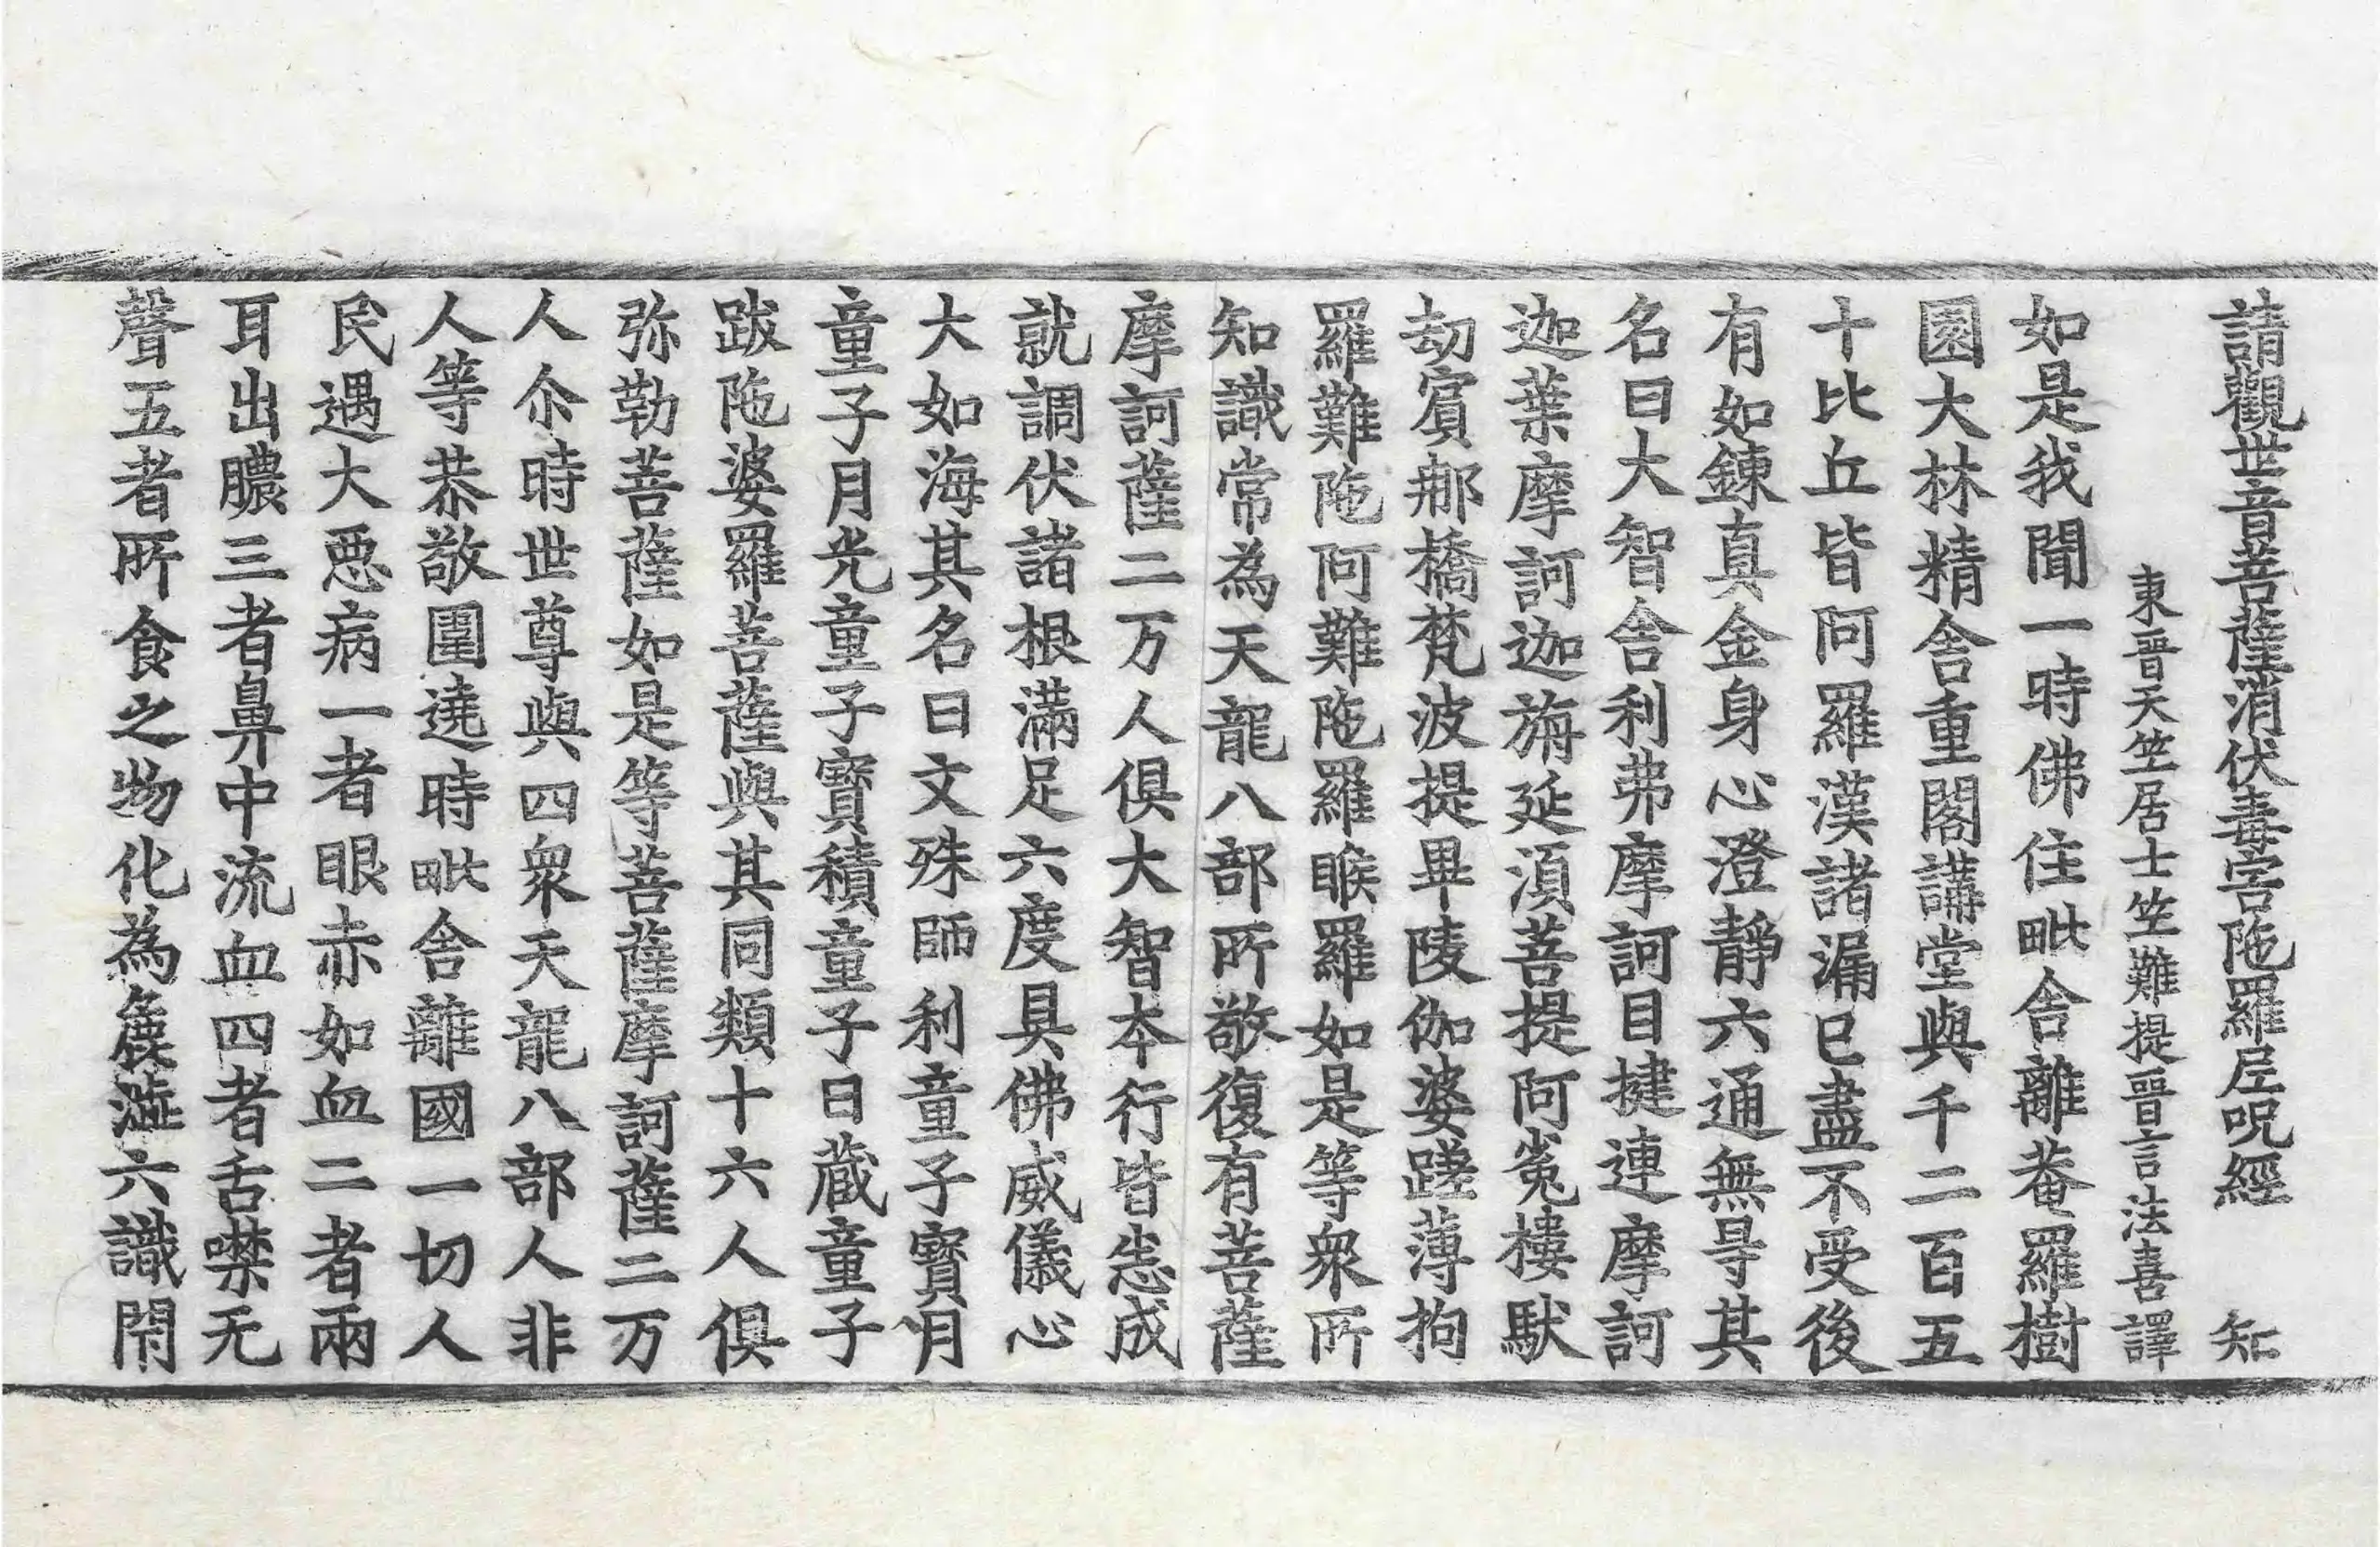 請觀世音菩薩消伏毒害陁羅尼呪經 知
東晉天竺居士竺難提晉言法喜譯
如是我聞一時佛住毗舍離菴羅樹
園大林精舍重閣講堂與千二百五
十比丘皆阿羅漢諸漏已盡不受後
有如鍊真金身心澄靜六通無㝵其
名曰大智舍利弗摩訶目揵連摩訶
迦葉摩訶迦旃延湏菩提阿㝹樓馱
劫賓那橋梵波提畢陵伽婆蹉薄拘
羅難陁阿難陁羅睺羅如是等衆所
知識常為天龍八部所敬復有菩薩
摩訶薩二万人俱大智夲行皆悉成
就調伏諸根滿足六度具佛威儀心
大如海其名曰文殊師利童子寶月
童子月光童子寶積童子日藏童子
跋陁婆羅菩薩與其同類十六人俱
弥勒菩薩如是等菩薩摩訶薩二万
人尒時世尊與四衆天龍八部人非
人等恭敬圍遶時毗舍離國一切人
民遇大惡病一者眼赤如血二者兩
耳出膿三者鼻中流血四者舌噤无
聲五者所食之物化為麁澁六識閇